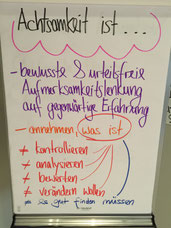 Achtsamkeit ist ...
- bewusste & urteilsfreie
Aufmerksamkeitslenkung
auf gegenwärtige Erfahrung
- annehmen, was ist
≠ kontrollieren
≠ analysieren
≠ bewerten
≠ verändern wollen
≠ es gut finden müssen